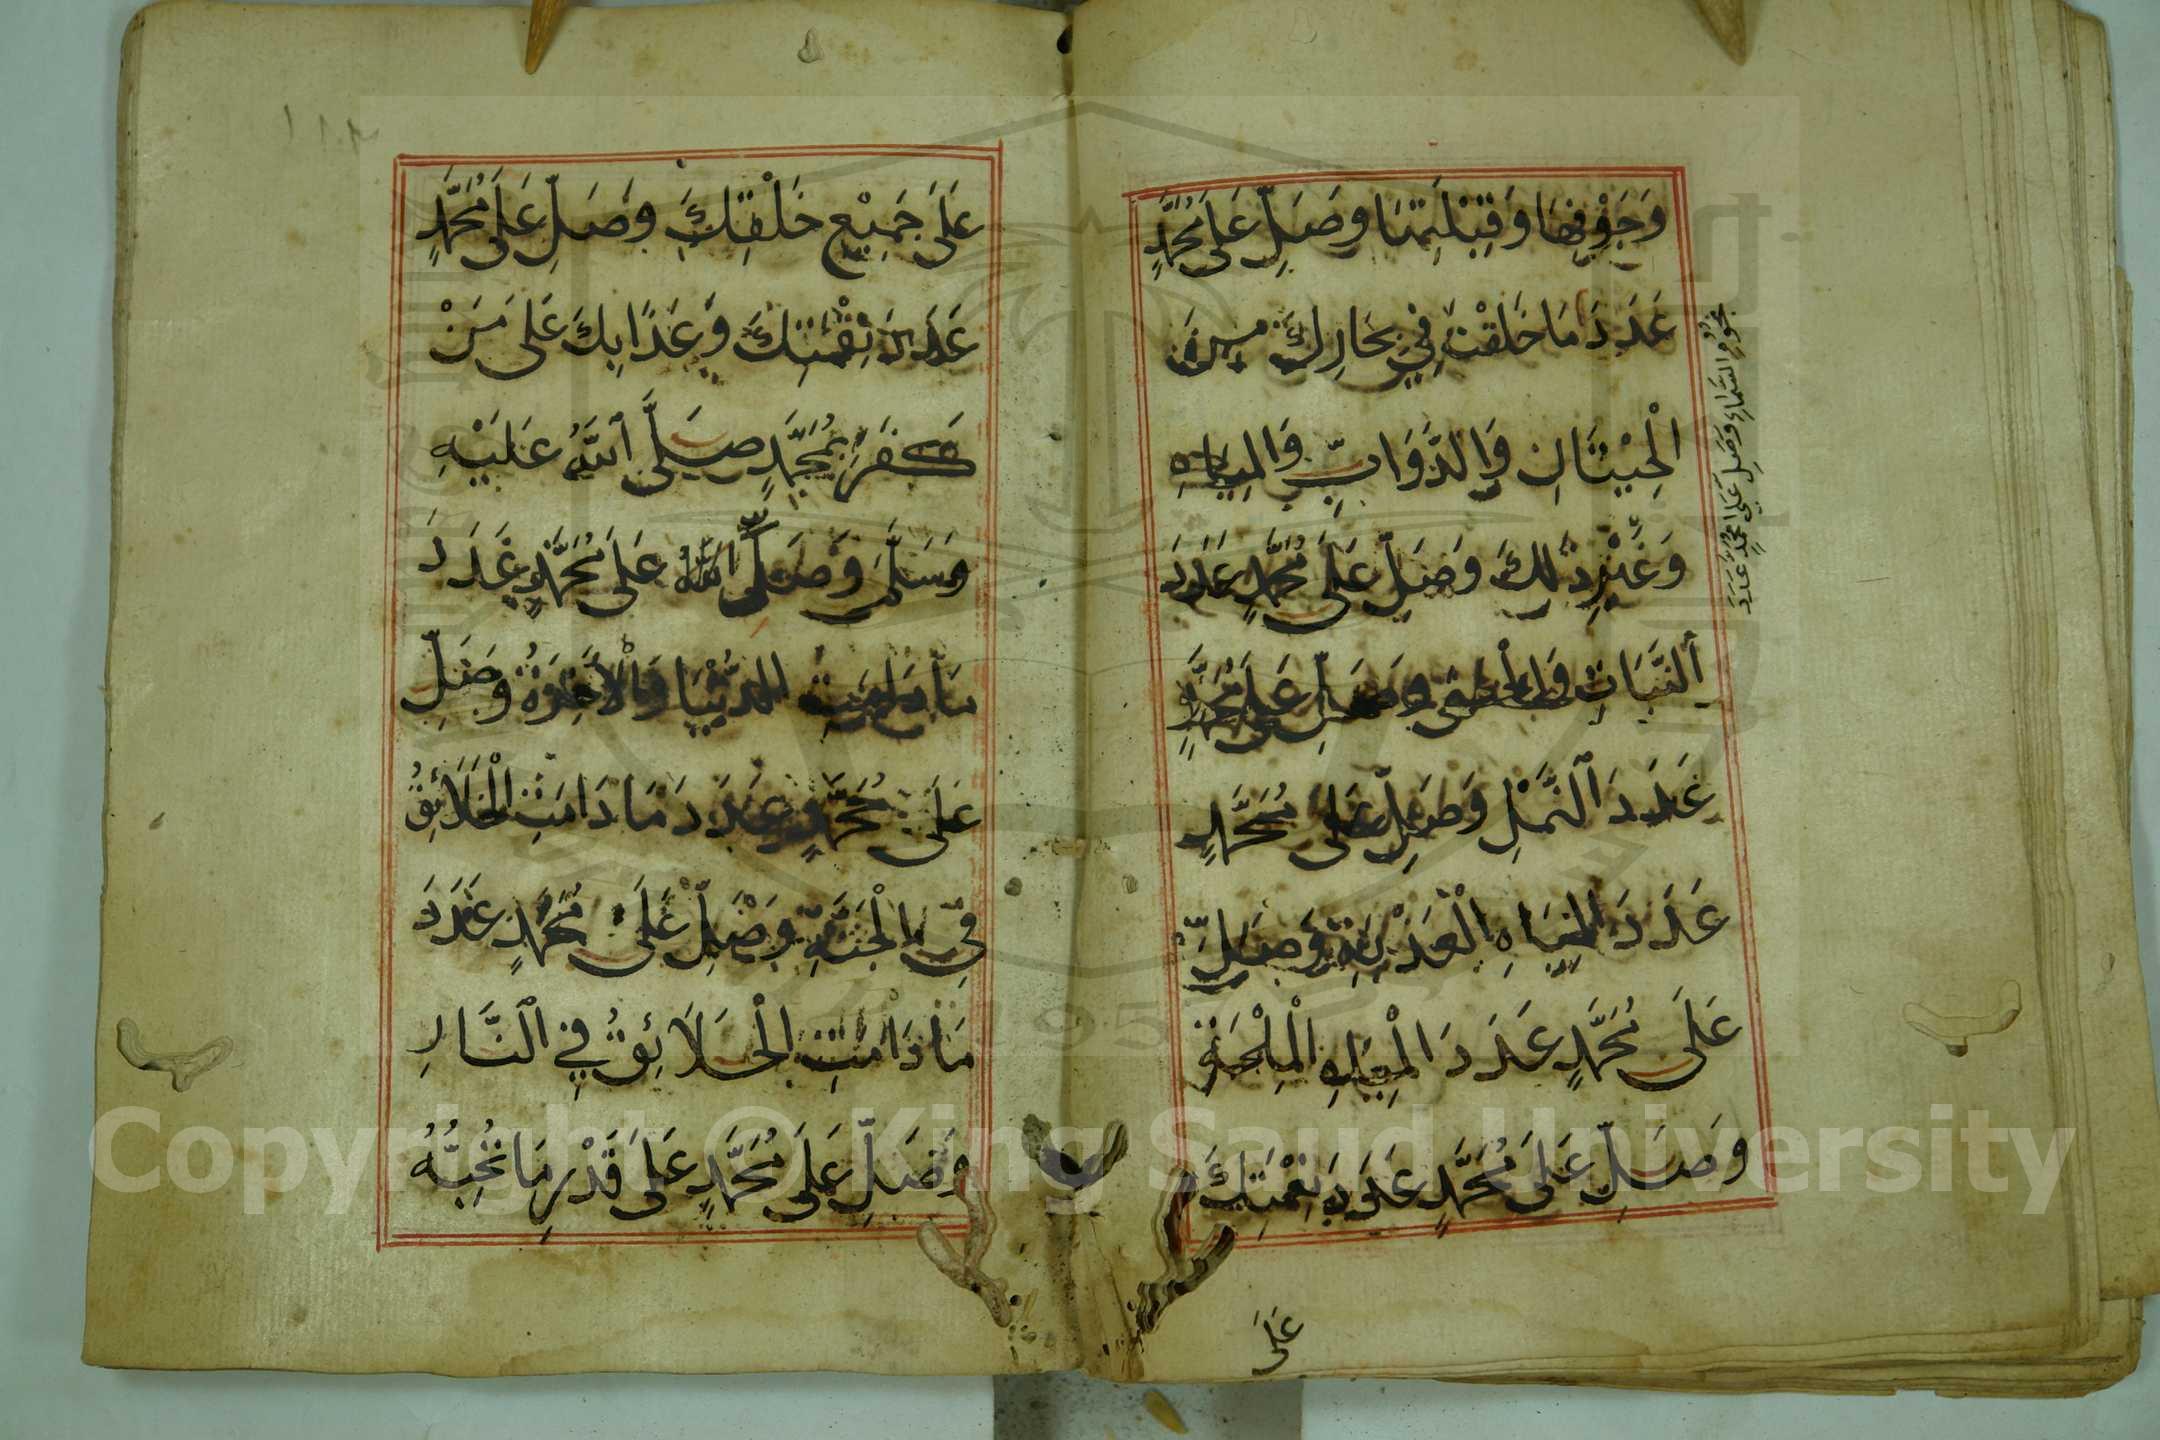 وَجَوْفِهَا وَقِبْلَتِهَا وَصَلِّ عَلَى مُحَمَّدٍ
عَدَدَ مَا خَلَقْتَ فِي بِحَارِكَ مِنَ
الْحِيْتَانِ وَالدَّوَابِّ وَالْمِيَاهِ
وَغَيْرِ ذٰلِكَ وَصَلِّ عَلَى مُحَمَّدٍ عَدَدَ
النَّبَاتِ وَالْحَصَى وَصَلِّ عَلَى مُحَمَّدٍ
عَدَدَ النَّمْلِ وَصَلِّ عَلَى مُحَمَّدٍ
عَدَدَ الْمِيَاهِ الْعَذْبَةِ وَصَلِّ
عَلَى مُحَمَّدٍ عَدَدَ الْمِيَاهِ الْمِلْحَةِ
وَصَلِّ عَلَى مُحَمَّدٍ عَدَدَ نِعْمَتِكَ
عَلَى
نُجُومِ السَّمَاءِ وَصَلِّ عَلَى مُحَمَّدٍ عَدَدَ
عَلَى جَمِيْعِ خَلْقِكَ وَصَلِّ عَلَى مُحَمَّدٍ
عَدَدَ نِقْمَتِكَ وَعَذَابِكَ عَلَى مَنْ
كَفَرَ بِمُحَمَّدٍ صَلَّى اللَّهُ عَلَيْهِ
وَسَلَّمَ وَصَلِّ عَلَى مُحَمَّدٍ عَدَدَ
مَا دَامَتِ الدُّنْيَا وَالْآخِرَةُ وَصَلِّ
عَلَى مُحَمَّدٍ عَدَدَ مَا دَامَتِ الْخَلَائِقُ
فِي الْجَنَّةِ وَصَلِّ عَلَى مُحَمَّدٍ عَدَدَ
مَا دَامَتِ الْخَلَائِقُ فِي النَّارِ
وَصَلِّ عَلَى مُحَمَّدٍ عَلَى قَدْرِ مَا تُحِبُّهُ
Copyright © King Saud University